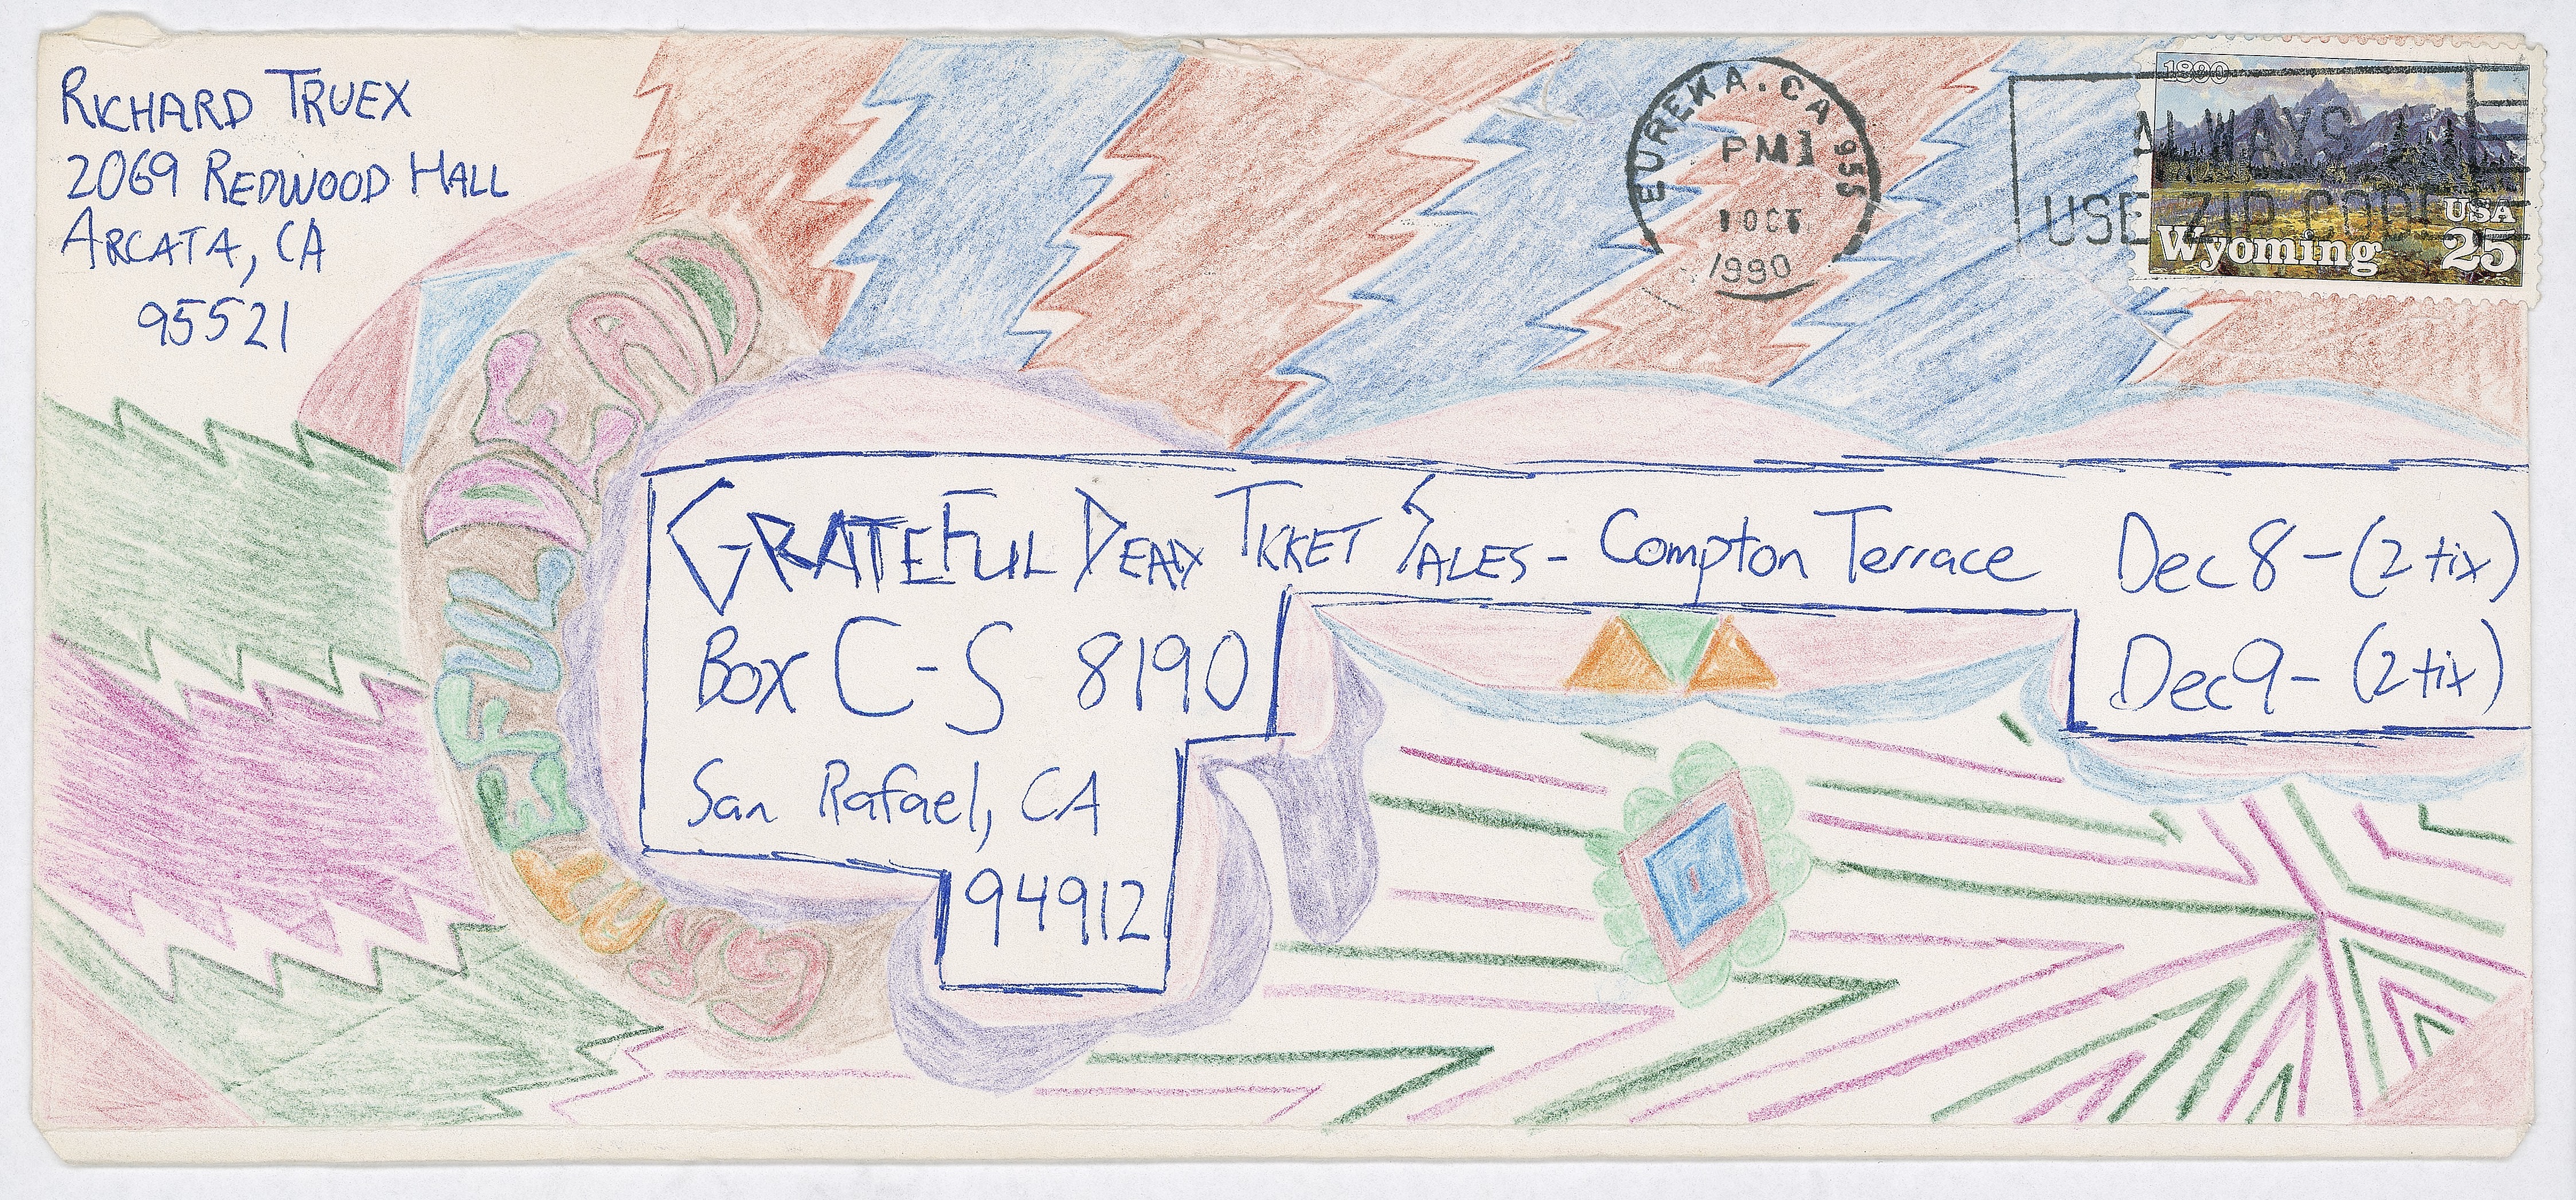 RICHARD TRUEX
2069 REDWOOD HALL
ARCATA, CA
95521
EUREKA. CA 955
PM
1 OCT
1990
ALWAYS
USE ZIP CODE
1890
USA
Wyoming 25
GRATEFUL DEAD
GRATEFUL DEAD TICKET SALES - Compton Terrace Dec 8 - (2 tix)
Box C-S 8190 Dec 9 - (2 tix)
San Rafael, CA
94912